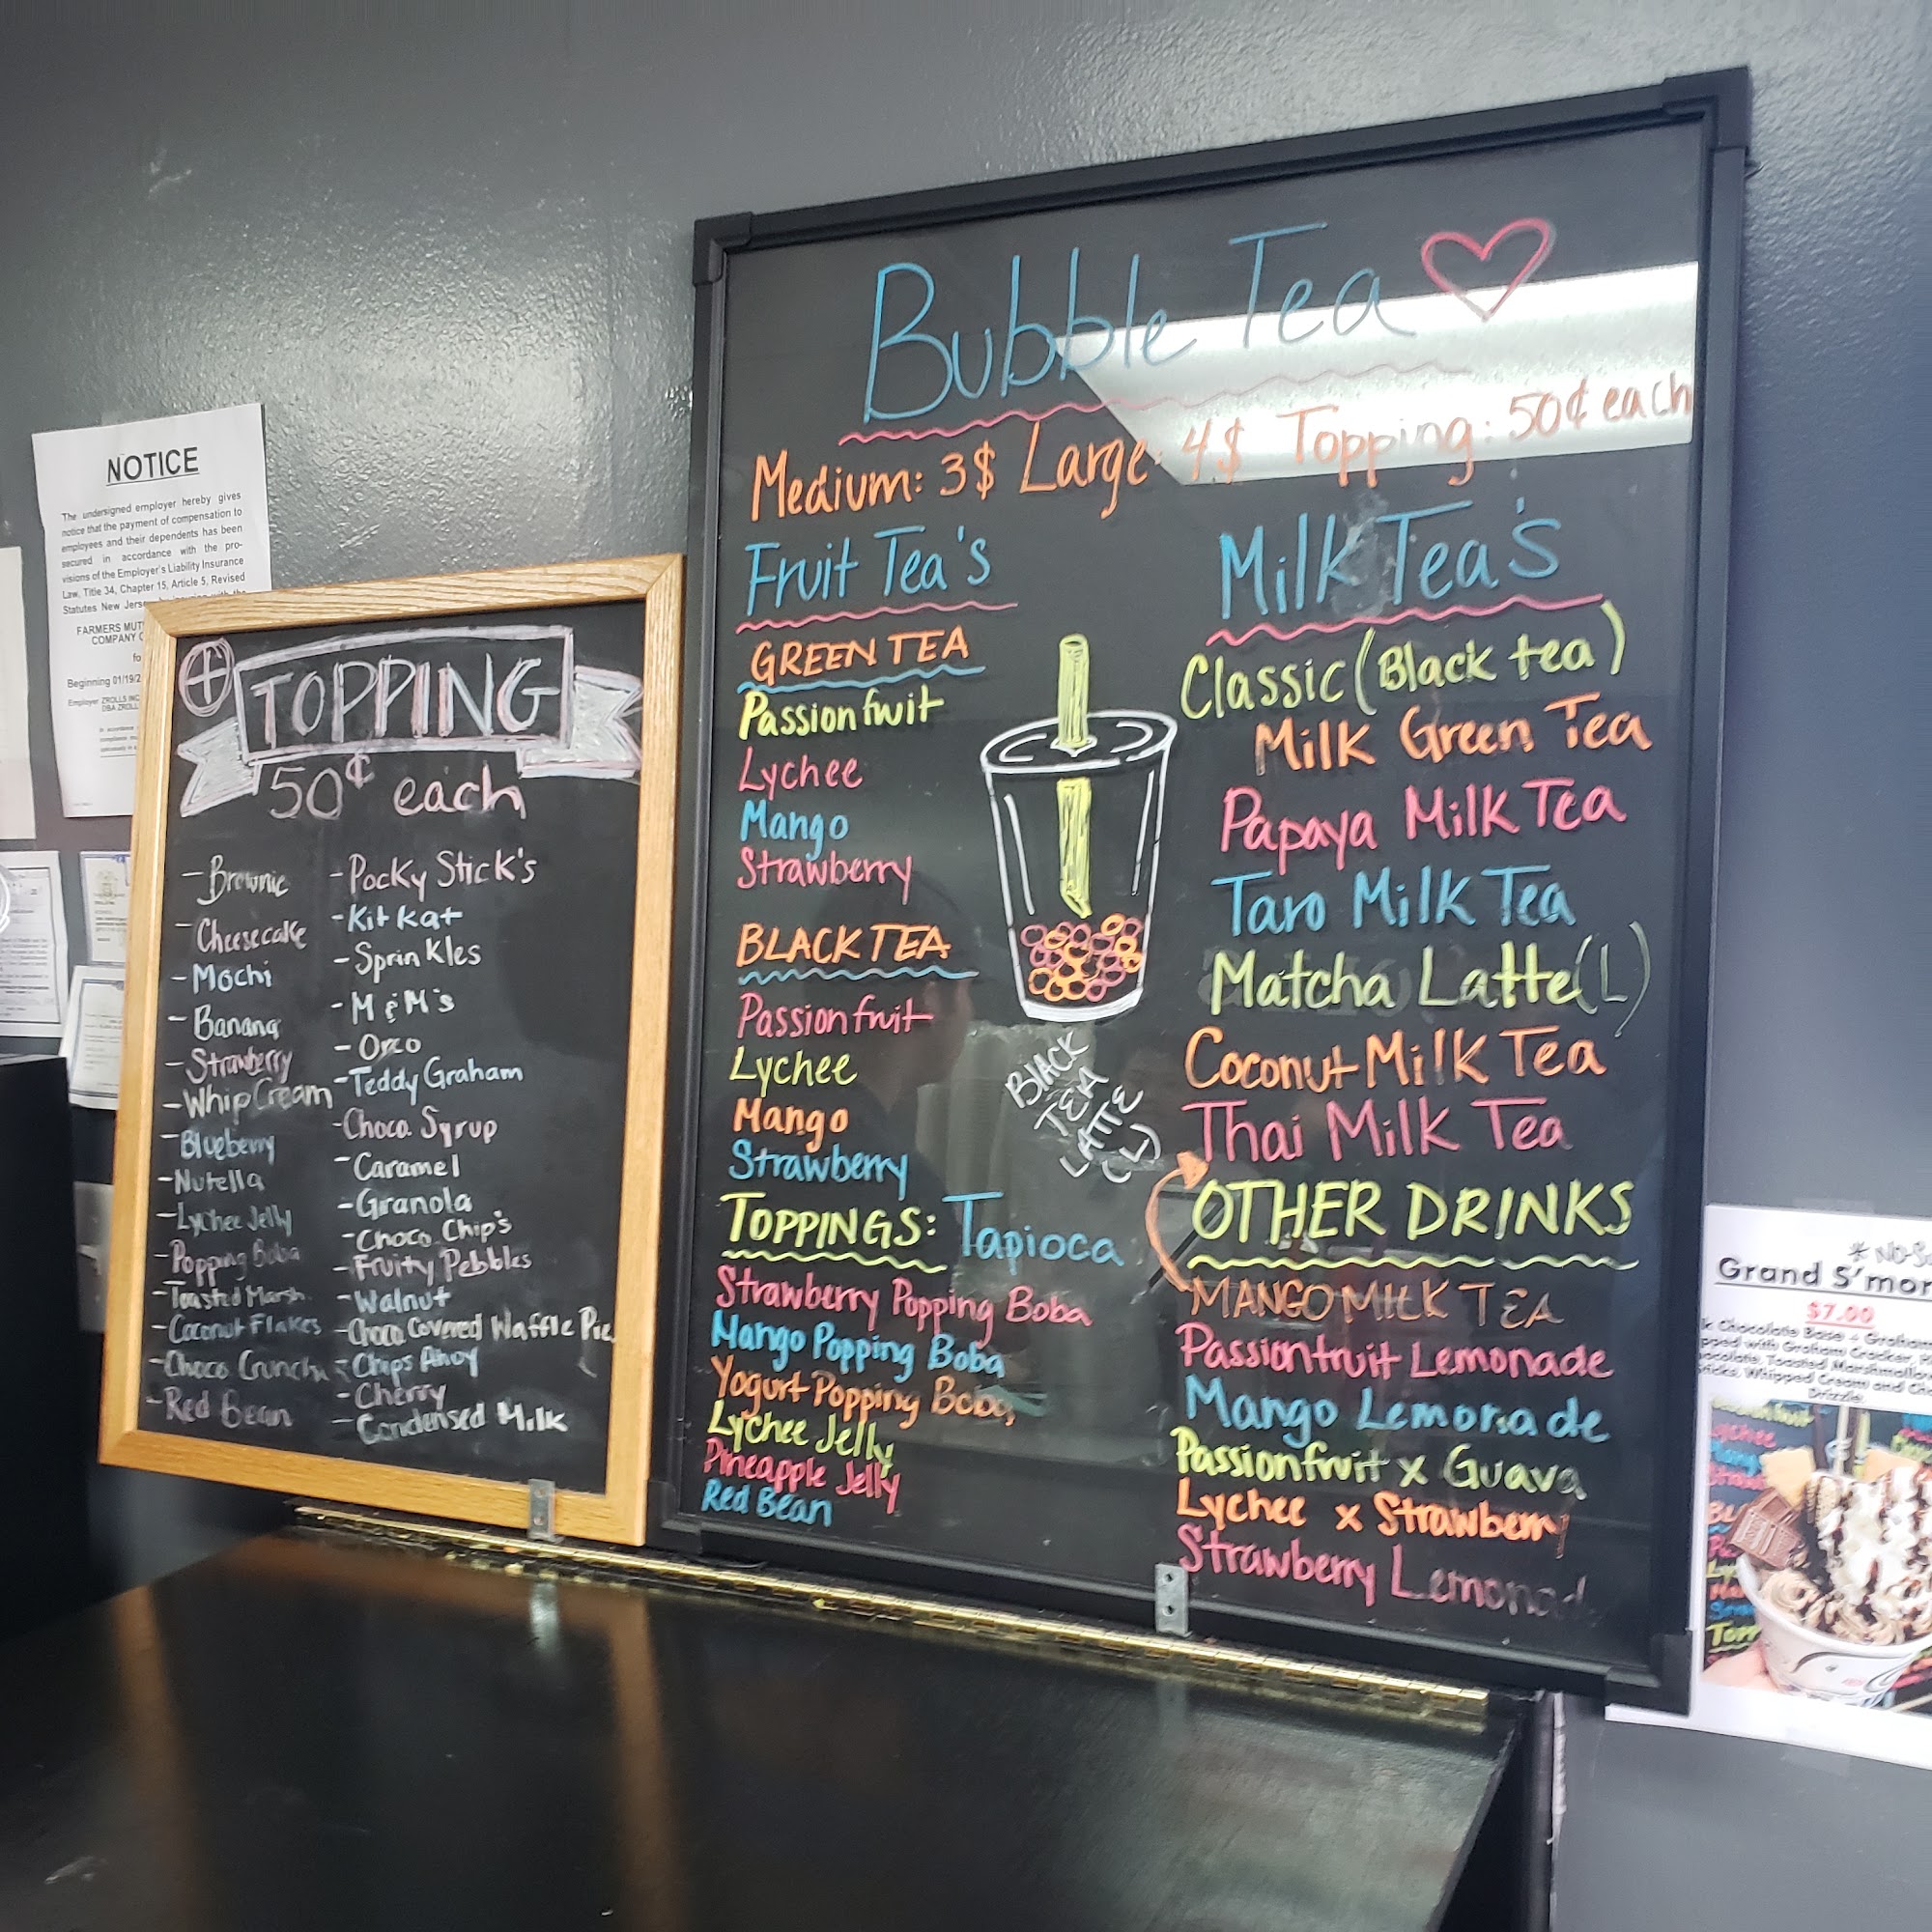 NOTICE
The undersigned employer hereby gives
notice that the payment of compensation to
employees and their dependents has been
secured in accordance with the pro-
visions of the Employer's Liability Insurance
Law, Title 34, Chapter 15, Article 5, Revised
Statutes New
FARMERS
COMPANY
Beginning
Employer
TOPPING
50¢ each
- Brownie
- Cheesecake
- Mochi
- Banana
- Strawberry
- Whip Cream
- Blueberry
- Nutella
- Lychee Jelly
- Popping Boba
- Toasted Marsh.
- Coconut Flakes
- Choco Crunch
- Red Bean
- Pocky Stick's
- Kit Kat
- Sprinkles
- M & M's
- Oreo
- Teddy Graham
- Choco Syrup
- Caramel
- Granola
- Choco Chip's
- Fruity Pebbles
- Walnut
- Choco Covered Waffle Pie
- Chips Ahoy
- Cherry
- Condensed Milk
Bubble Tea
Medium: 3$ Large: 4$ Topping: 50¢ each
Fruit Tea's
GREEN TEA
Passionfruit
Lychee
Mango
Strawberry
BLACK TEA
Passionfruit
Lychee
Mango
Strawberry
TOPPINGS: Tapioca
Strawberry Popping Boba
Mango Popping Boba
Yogurt Popping Boba
Lychee Jelly
Pineapple Jelly
Red Bean
BLACK
TEA
LATTE
(L)
Milk Tea's
Classic (Black tea)
Milk Green Tea
Papaya Milk Tea
Taro Milk Tea
Matcha Latte (L)
Coconut Milk Tea
Thai Milk Tea
OTHER DRINKS
MANGO MILK TEA
Passionfruit Lemonade
Mango Lemonade
Passionfruit x Guava
Lychee x Strawberry
Strawberry Lemonad
Grand S'mor
$7.00
Chocolate Base
with Graham Cracker,
Toasted Marshmallow
Whipped Cream and
Drizzle